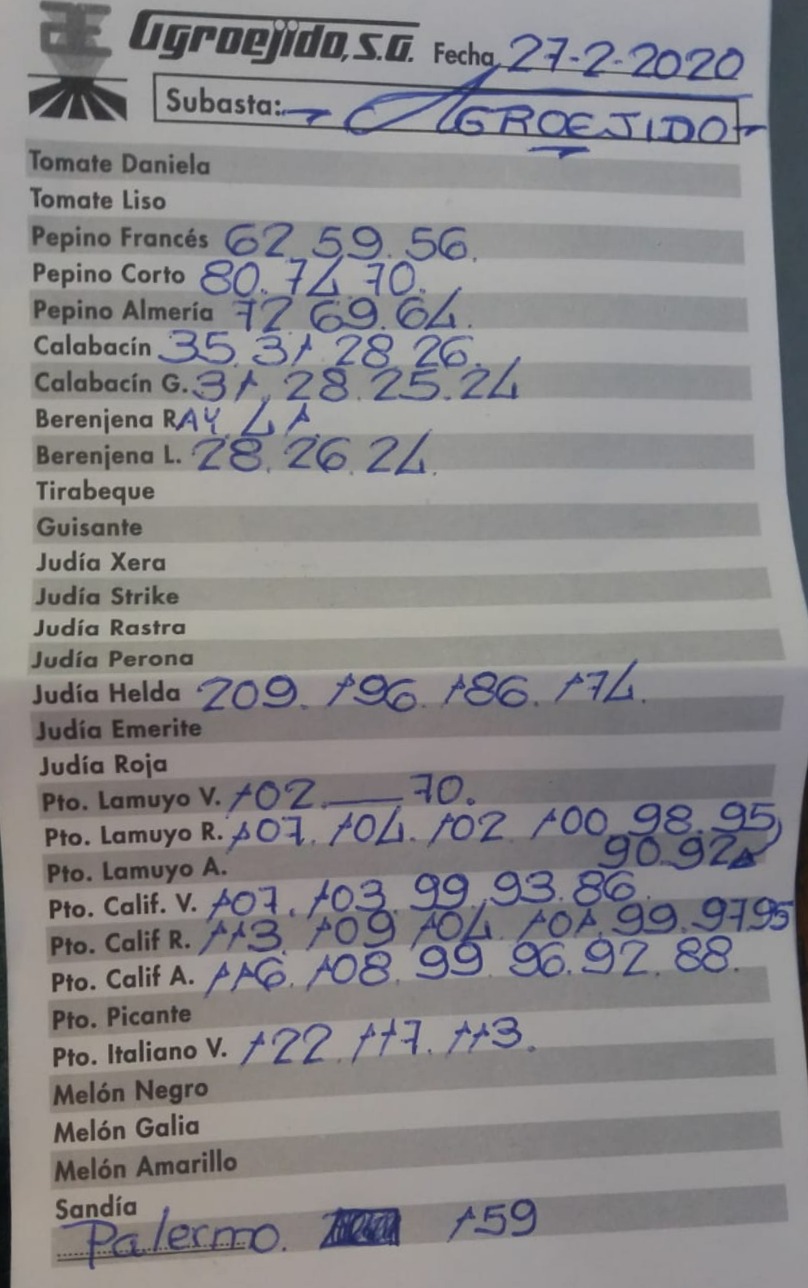 Agroejido, S.A. Fecha 27-2-2020
Subasta: AGROEJIDO
Tomate Daniela
Tomate Liso
Pepino Francés 62. 59. 56.
Pepino Corto 80. 74 70.
Pepino Almería 72 69. 64.
Calabacín 35. 31 28. 26.
Calabacín G. 31. 28. 25. 24
Berenjena RAY 41
Berenjena L. 28. 26. 24.
Tirabeque
Guisante
Judía Xera
Judía Strike
Judía Rastra
Judía Perona
Judía Helda 209. 196. 186. 174.
Judía Emerite
Judía Roja
Pto. Lamuyo V. 102. __ 70.
Pto. Lamuyo R. 107. 104. 102 100 98. 95
90. 92
Pto. Lamuyo A.
Pto. Calif. V. 107. 103. 99. 93. 86
Pto. Calif R. 113. 109 104 101. 99. 97 95
Pto. Calif A. 116. 108. 99 96. 92. 88.
Pto. Picante
Pto. Italiano V. 122. 117. 113.
Melón Negro
Melón Galia
Melón Amarillo
Sandía
Palermo. 159